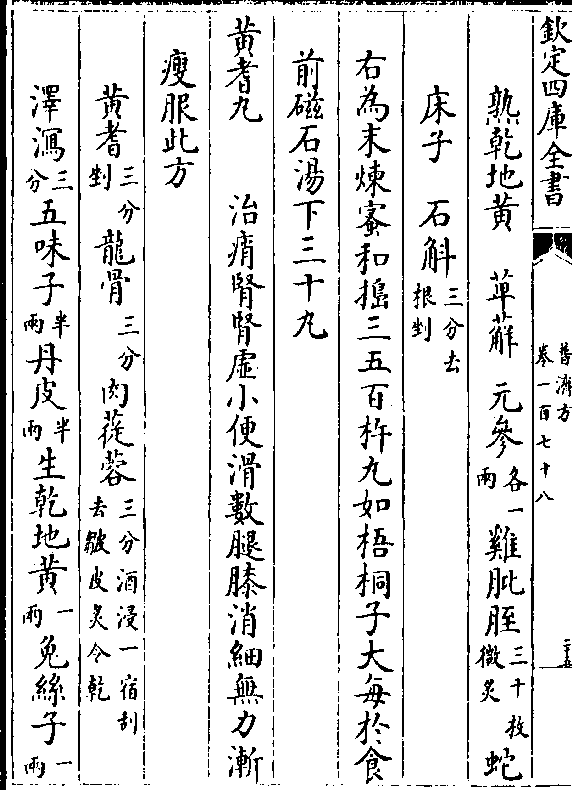 欽定四庫全書
普濟方
卷一百七十八
二十五
熟乾地黃 萆薢 元參各一兩 雞肶胵三十枚微炙 蛇
床子 石斛三分去根剉
右為末煉蜜和搗三五百杵丸如梧桐子大每於食
前磁石湯下三十丸
黃耆丸 治痟腎腎虛小便滑數腿膝消細無力漸
瘦服此方
黃耆三分剉 龍骨三分 肉蓯蓉三分酒浸一宿刮去皴皮炙令乾
澤瀉三分 五味子半兩 丹皮半兩 生乾地黃一兩 兔絲子一兩